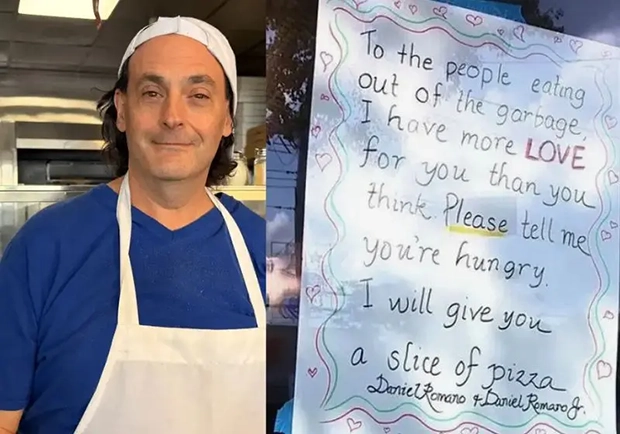 To the people eating
out of the garbage,
I have more LOVE
for you than you
think. Please tell me
you're hungry.
I will give you
a slice of pizza
Daniel Romano & Daniel Romano Jr.